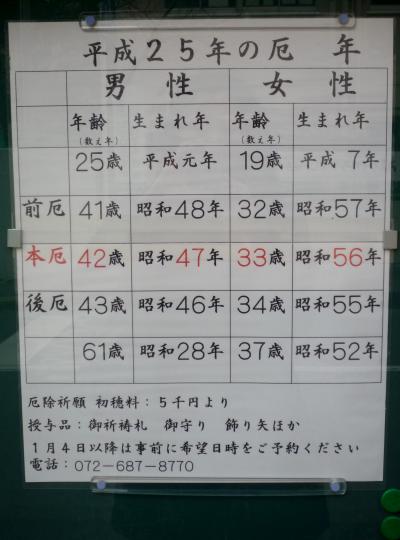 平成25年の厄 年
男 性 女 性
年齢(数え年) 生まれ年 年齢(数え年) 生まれ年
25歳 平成元年 19歳 平成 7年
前厄 41歳 昭和48年 32歳 昭和57年
本厄 42歳 昭和47年 33歳 昭和56年
後厄 43歳 昭和46年 34歳 昭和55年
61歳 昭和28年 37歳 昭和52年
厄除祈願 初穂料：5千円より
授与品：御祈祷札 御守り 飾り矢ほか
1月4日以降は事前に希望日時をご予約ください
電話：072－687－8770